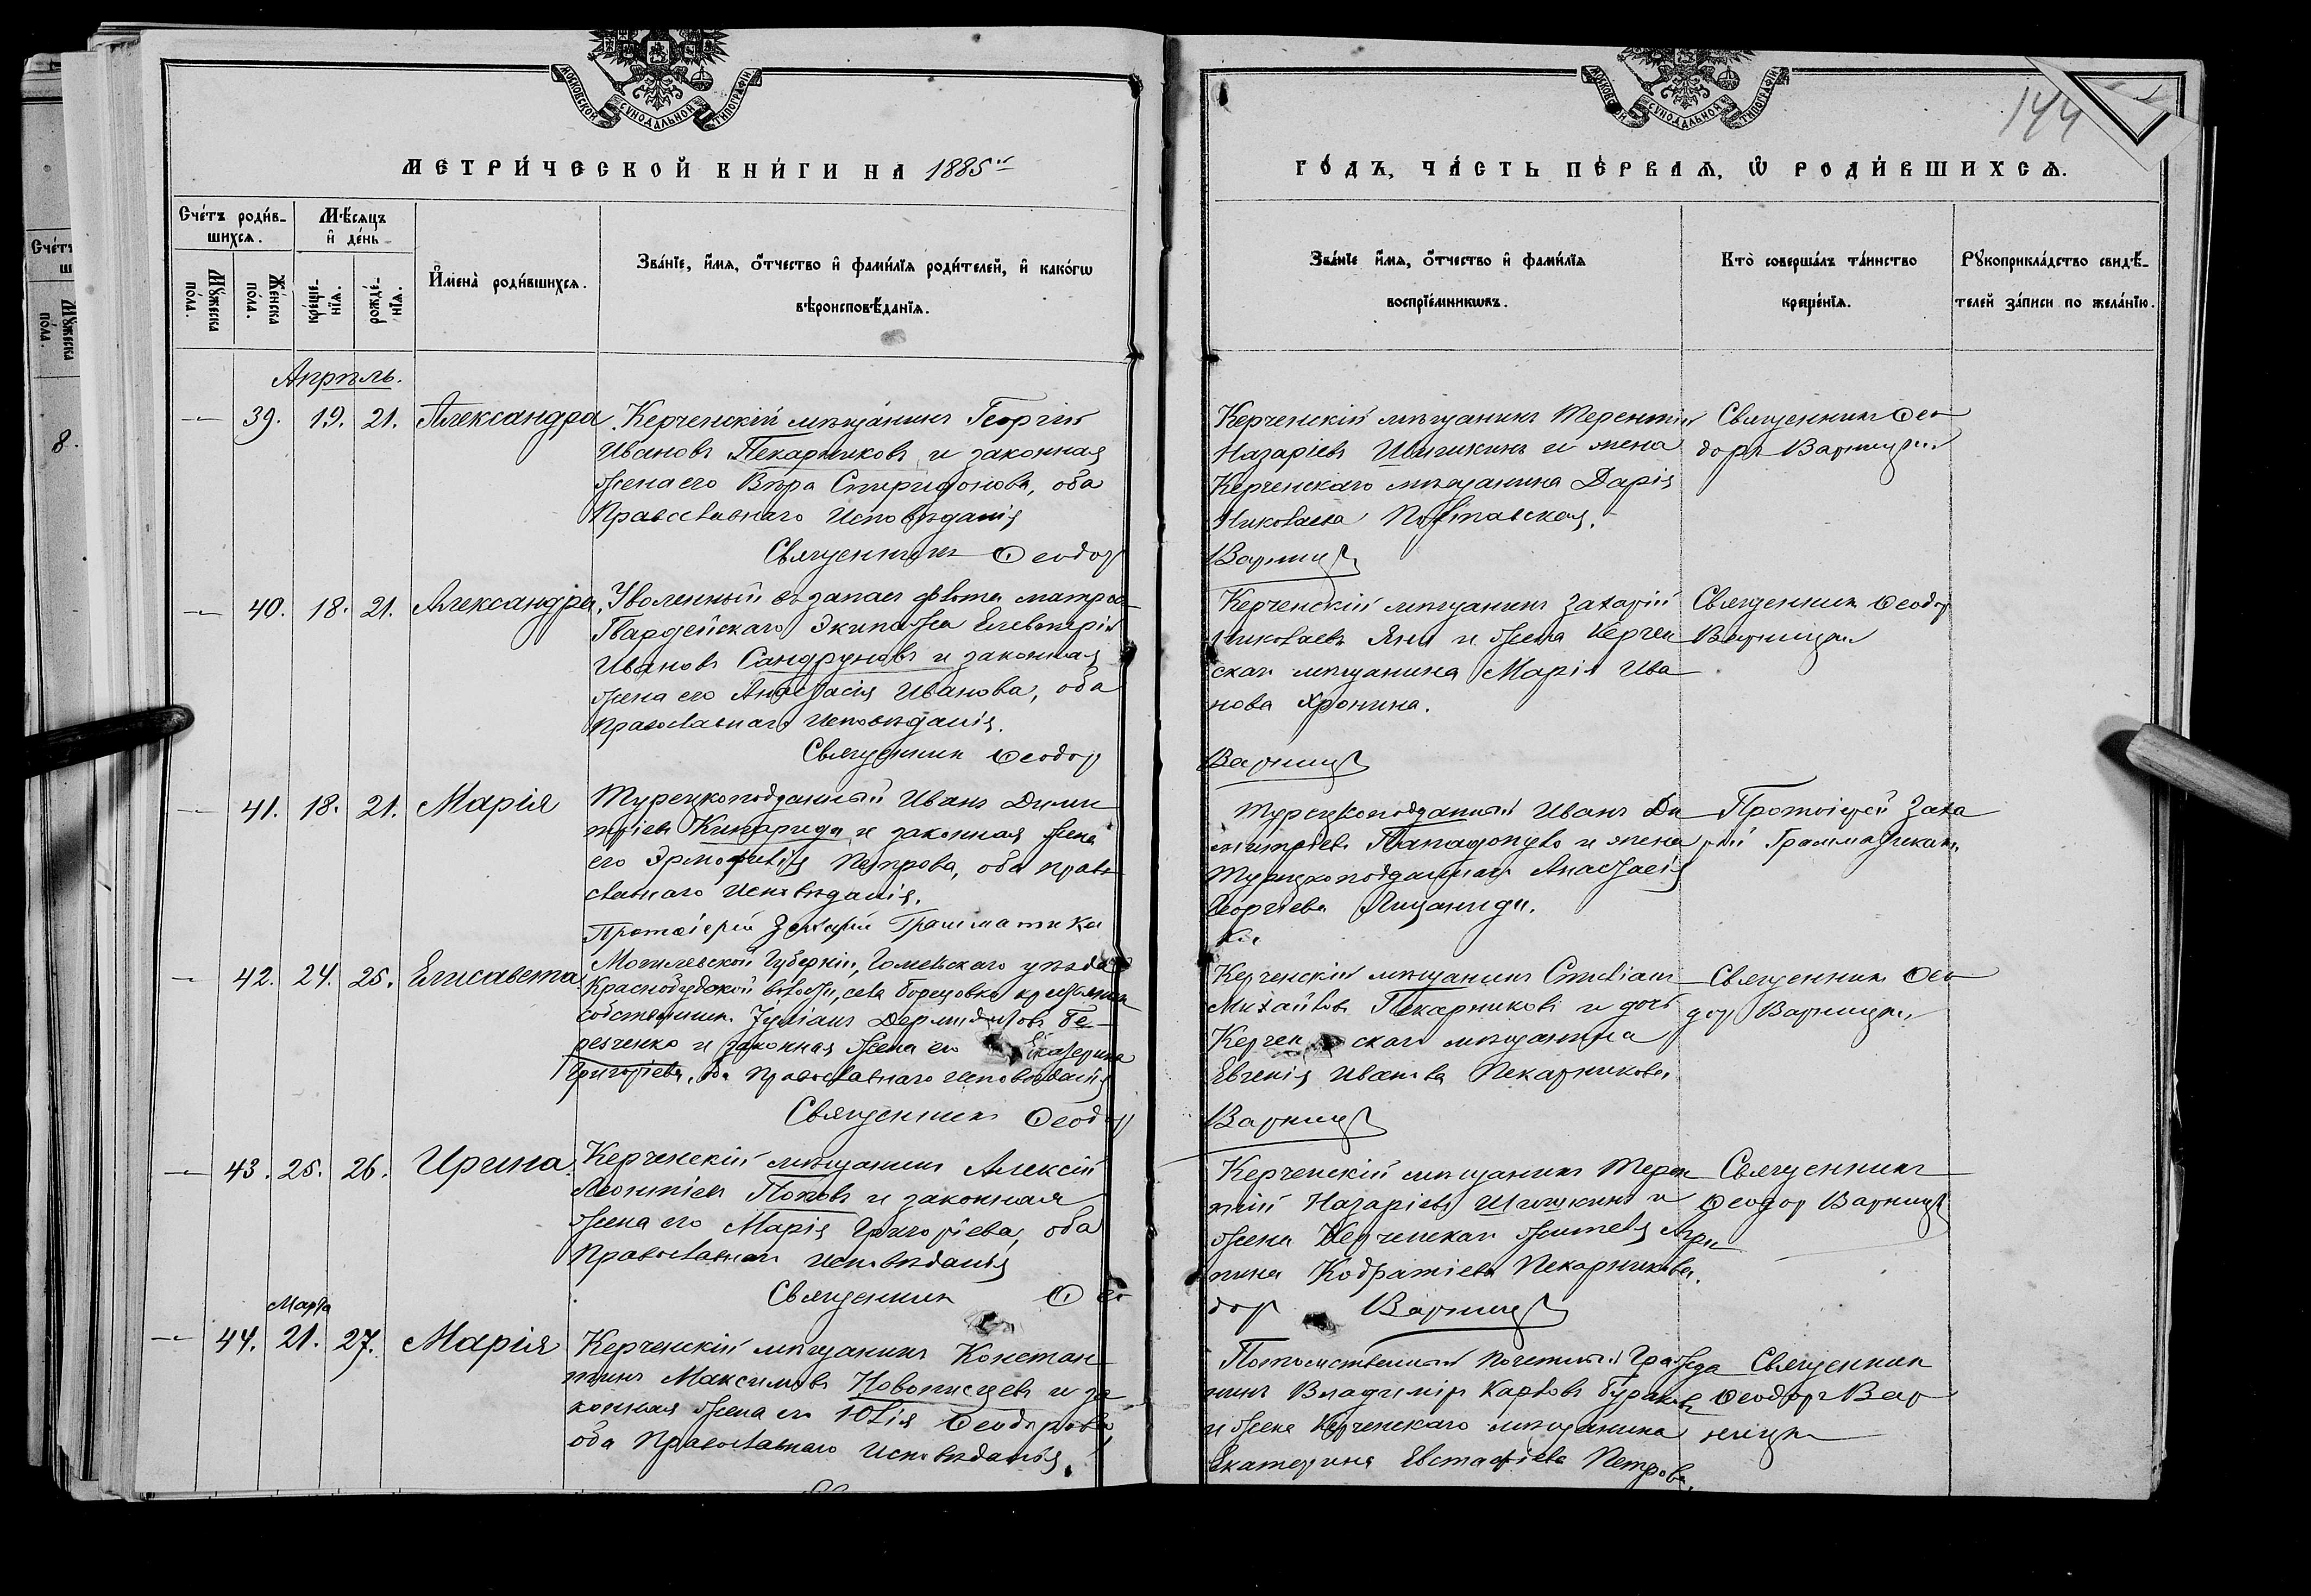 МОСКОВСКОЙ СѴНОДАЛЬНОЙ ТИПОГРАФІИ
МЕТРИ́ЧЕСКОЙ КНИ́ГИ НА 1885й
Сче́тъ роди́вшихсѧ.
Мѣ́сѧцъ и҆ де́нь
Мꙋ́жеска по́ла.
Же́нска по́ла.
кре́ще́нїѧ.
рожде́нїѧ.
И҆мена̀ роди́вшихсѧ.
Зва́нїе, и҆́мѧ, ѻ҆́тчество и҆ фами́лїѧ роди́телей, и҆ како́гѡ
вѣроисповѣ́данїѧ.
Апрѣль.
— 39. 19. 21. Александра
Керченскій мѣщанинъ Георгій
Ивановъ Пекарниковъ и законная
жена его Вѣра Спиридонова, оба
Православнаго Исповѣданія
Священникъ Ѳеодор
— 40. 18. 21. Александра
Уволенный въ запасъ флота матрос
Гвардейскаго Экипажа Елевтерій
Ивановъ Сандруновъ и законная
жена его Анастасія Иванова, оба
православнаго исповѣданія.
Священник Ѳеодор
— 41. 18. 21. Марія
Турецкоподданный Иванъ Дими
тріевъ Кипариди и законная жена
его Петрова, оба право
славнаго Исповѣданія.
Протоіерей Захарій Грамматика
— 42. 24. 25. Елисавета
Могилевской Губерніи, Гомельскаго уѣзда
Краснобудской волости, села крестьянин
собственник Іуліанъ
и законная жена его Екатерина
Григоріева, оба Православнаго исповѣданія
Священникъ Ѳеодор
— 43. 25. 26. Ирина
Керченскій мѣщанинъ Алексій
Леонтіевъ Поповъ и законная
жена его Марія Григоріева, оба
Православнаго исповѣданія
Священник Ѳео
Марта
— 44. 21. 27. Марія
Керченскій мѣщанинъ Констан
тинъ Максимовъ Новописцевъ и за
конная жена его Юлія Ѳеодорова
оба Православнаго Исповѣданія.
144
МОСКОВСКОЙ СѴНОДАЛЬНОЙ ТИПОГРАФІИ
ГО́ДЪ, ЧА́СТЬ ПЕ́РВАѦ, Ѡ҆ РОДИ́ВШИХСѦ.
Зва́нїе и҆́мѧ, ѻ҆́тчество и҆ фами́лїѧ
воспрїе́мникѡвъ.
Кто̀ соверша́лъ та́инство
креще́нїѧ.
Рꙋкоприкла́дство свидѣ́-
телей за́писи по жела́нїю.
Керченскій мѣщанинъ Терентій
Назаріевъ Шишкинъ и жена
Керченскаго мѣщанина Дарія
Николаева Полтавская.
Варницк
Священник Ѳео
доръ Варницкій
Керченскій мѣщанинъ Захарій
Николаевъ Яни и жена Керчен
скаго мѣщанина Марія Ива
нова Хронина.
Варницк
Священник Ѳеодор
Варницкій
Турецкоподданный Иванъ Ди
митріевъ Пападопуло и жена
Турецкоподданнаго Анастасія
Георгіева
Протоіерей Заха
рій Грамматика
Керченскій мѣщанинъ Стиліанъ
Михайловъ Пекарниковъ и дочь
Керченскаго мѣщанина
Евгенія Иванова Пекарникова
Варницк
Священник Ѳео
дор Варницкій
Керченскій мѣщанинъ Терен
тій Назаріевъ Шишкинъ и
жена Керченскаго жителя Агри
пина Кодратіева Пекарникова.
дор Варницк
Священникъ
Ѳеодор Варницк
Потомственный Почетный Гражда
нинъ Владиміръ Карловъ
и жена Керченскаго мѣщанина
Екатерина Евстафіева Петрова.
Священник
Ѳеодоръ Вар
ницкій
Сче́тъ
Мꙋ́жеска по́ла.
8.